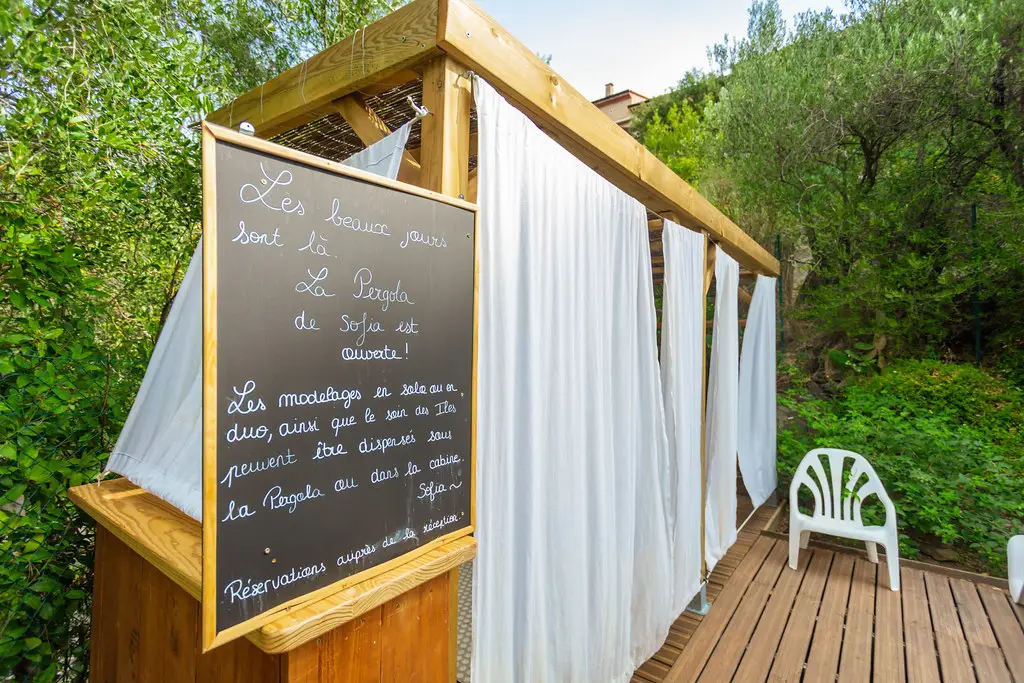 Les beaux jours
sont là.
La Pergola
de Sofia est
ouverte !
Les modelages en solo ou en
duo, ainsi que le soin des Iles
peuvent être dispensés sous
la Pergola ou dans la cabine.
Sofia ~
Réservations auprès de la réception.